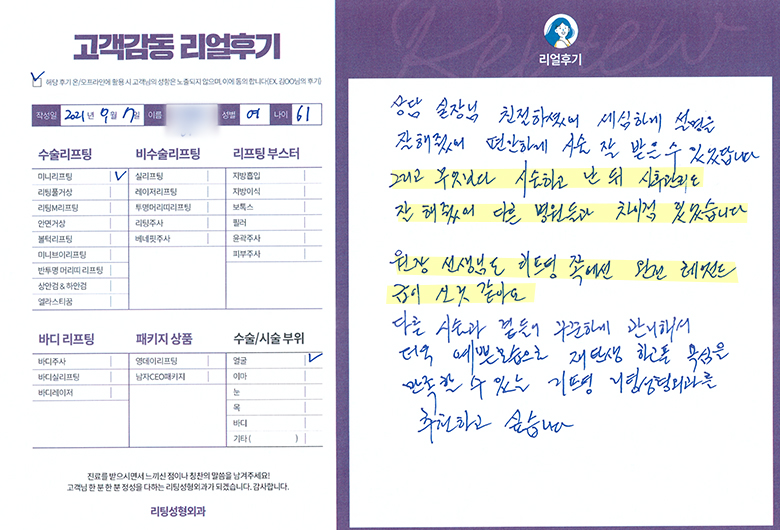 고객감동 리얼후기
해당 후기 온/오프라인에 활용 시 고객님의 성함은 노출되지 않으며, 이에 동의 합니다(EX. 김OO님의 후기)
작성일 2021년 9월 17일 이름 성별 여 나이 61
수술리프팅 비수술리프팅 리프팅 부스터
미니리프팅 실리프팅 지방흡입
리팅풀거상 레이저리프팅 지방이식
리팅M리프팅 투명머리띠리프팅 보톡스
안면거상 리팅주사 필러
볼턱리프팅 베네핏주사 윤곽주사
미니브이리프팅 피부주사
반투명 머리띠 리프팅
상안검 & 하안검
엘라스티꿈
바디 리프팅 패키지 상품 수술/시술 부위
바디주사 영데이리프팅 얼굴
바디실리프팅 남자CEO패키지 이마
바디레이저 눈
목
바디
기타 ( )
진료를 받으시면서 느끼신 점이나 칭찬의 말씀을 남겨주세요!
고객님 한 분 한 분 정성을 다하는 리팅성형외과가 되겠습니다. 감사합니다.
리팅성형외과
Review
리얼후기
상담 실장님 친절하셨어 세심하게 설명을
잘해줬어 편안하게 시술 잘 받을 수 있었답니다
그리고 무엇보다 시술하고 난 뒤 사후관리도
잘 해줬어 다른 병원들과 차이점 있었습니다
원장 선생님도 리프팅 쪽에선 완전 레전드
급이 신것 같아요
다른 시술과 곁들어 꾸준하게 관리해서
더욱 예쁜모습으로 재탄생 하고픈 욕심을
만족할 수 있는 리프팅 리팅성형외과를
추천하고 싶습니다